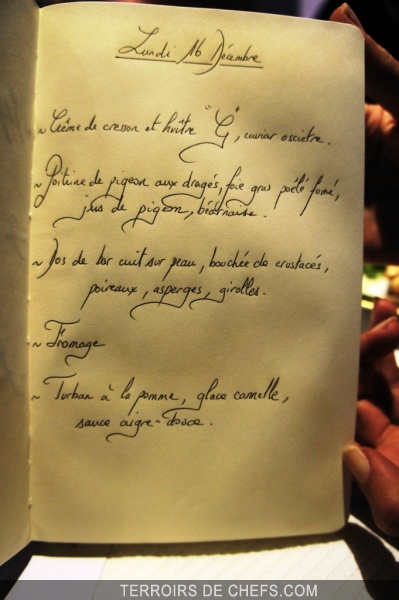 Lundi 16 Décembre
~ Crème de cresson et huître "G", caviar osciètre.
~ Poitrine de pigeon aux dragés, foie gras poêlé fumé,
jus de pigeon, béarnaise.
~ Dos de bar cuit sur peau, bouchée de crustacés,
poireaux, asperges, girolles.
~ Fromage
~ Turban à la pomme, glace canelle,
sauce aigre-douce.
TERROIRS DE CHEFS.COM